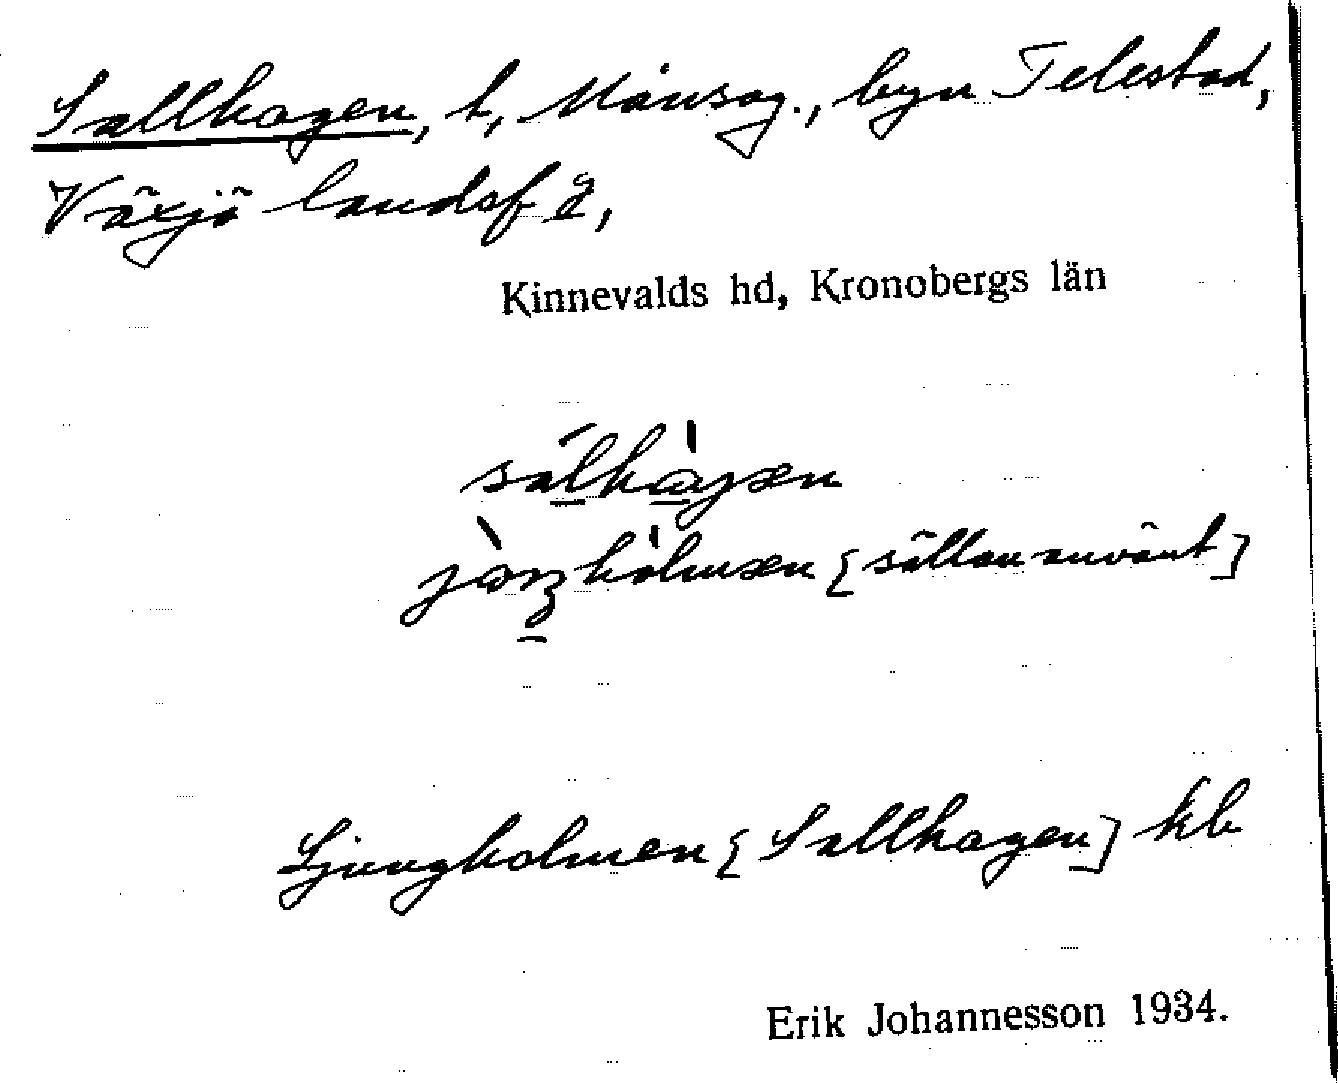 Sallhagen, t, Månsag., byn Telestad,
Växjö landsf
Kinnevalds hd, Kronobergs län
[sällan använt]
Ljungholmen [Sallhagen] kb
Erik Johannesson 1934.